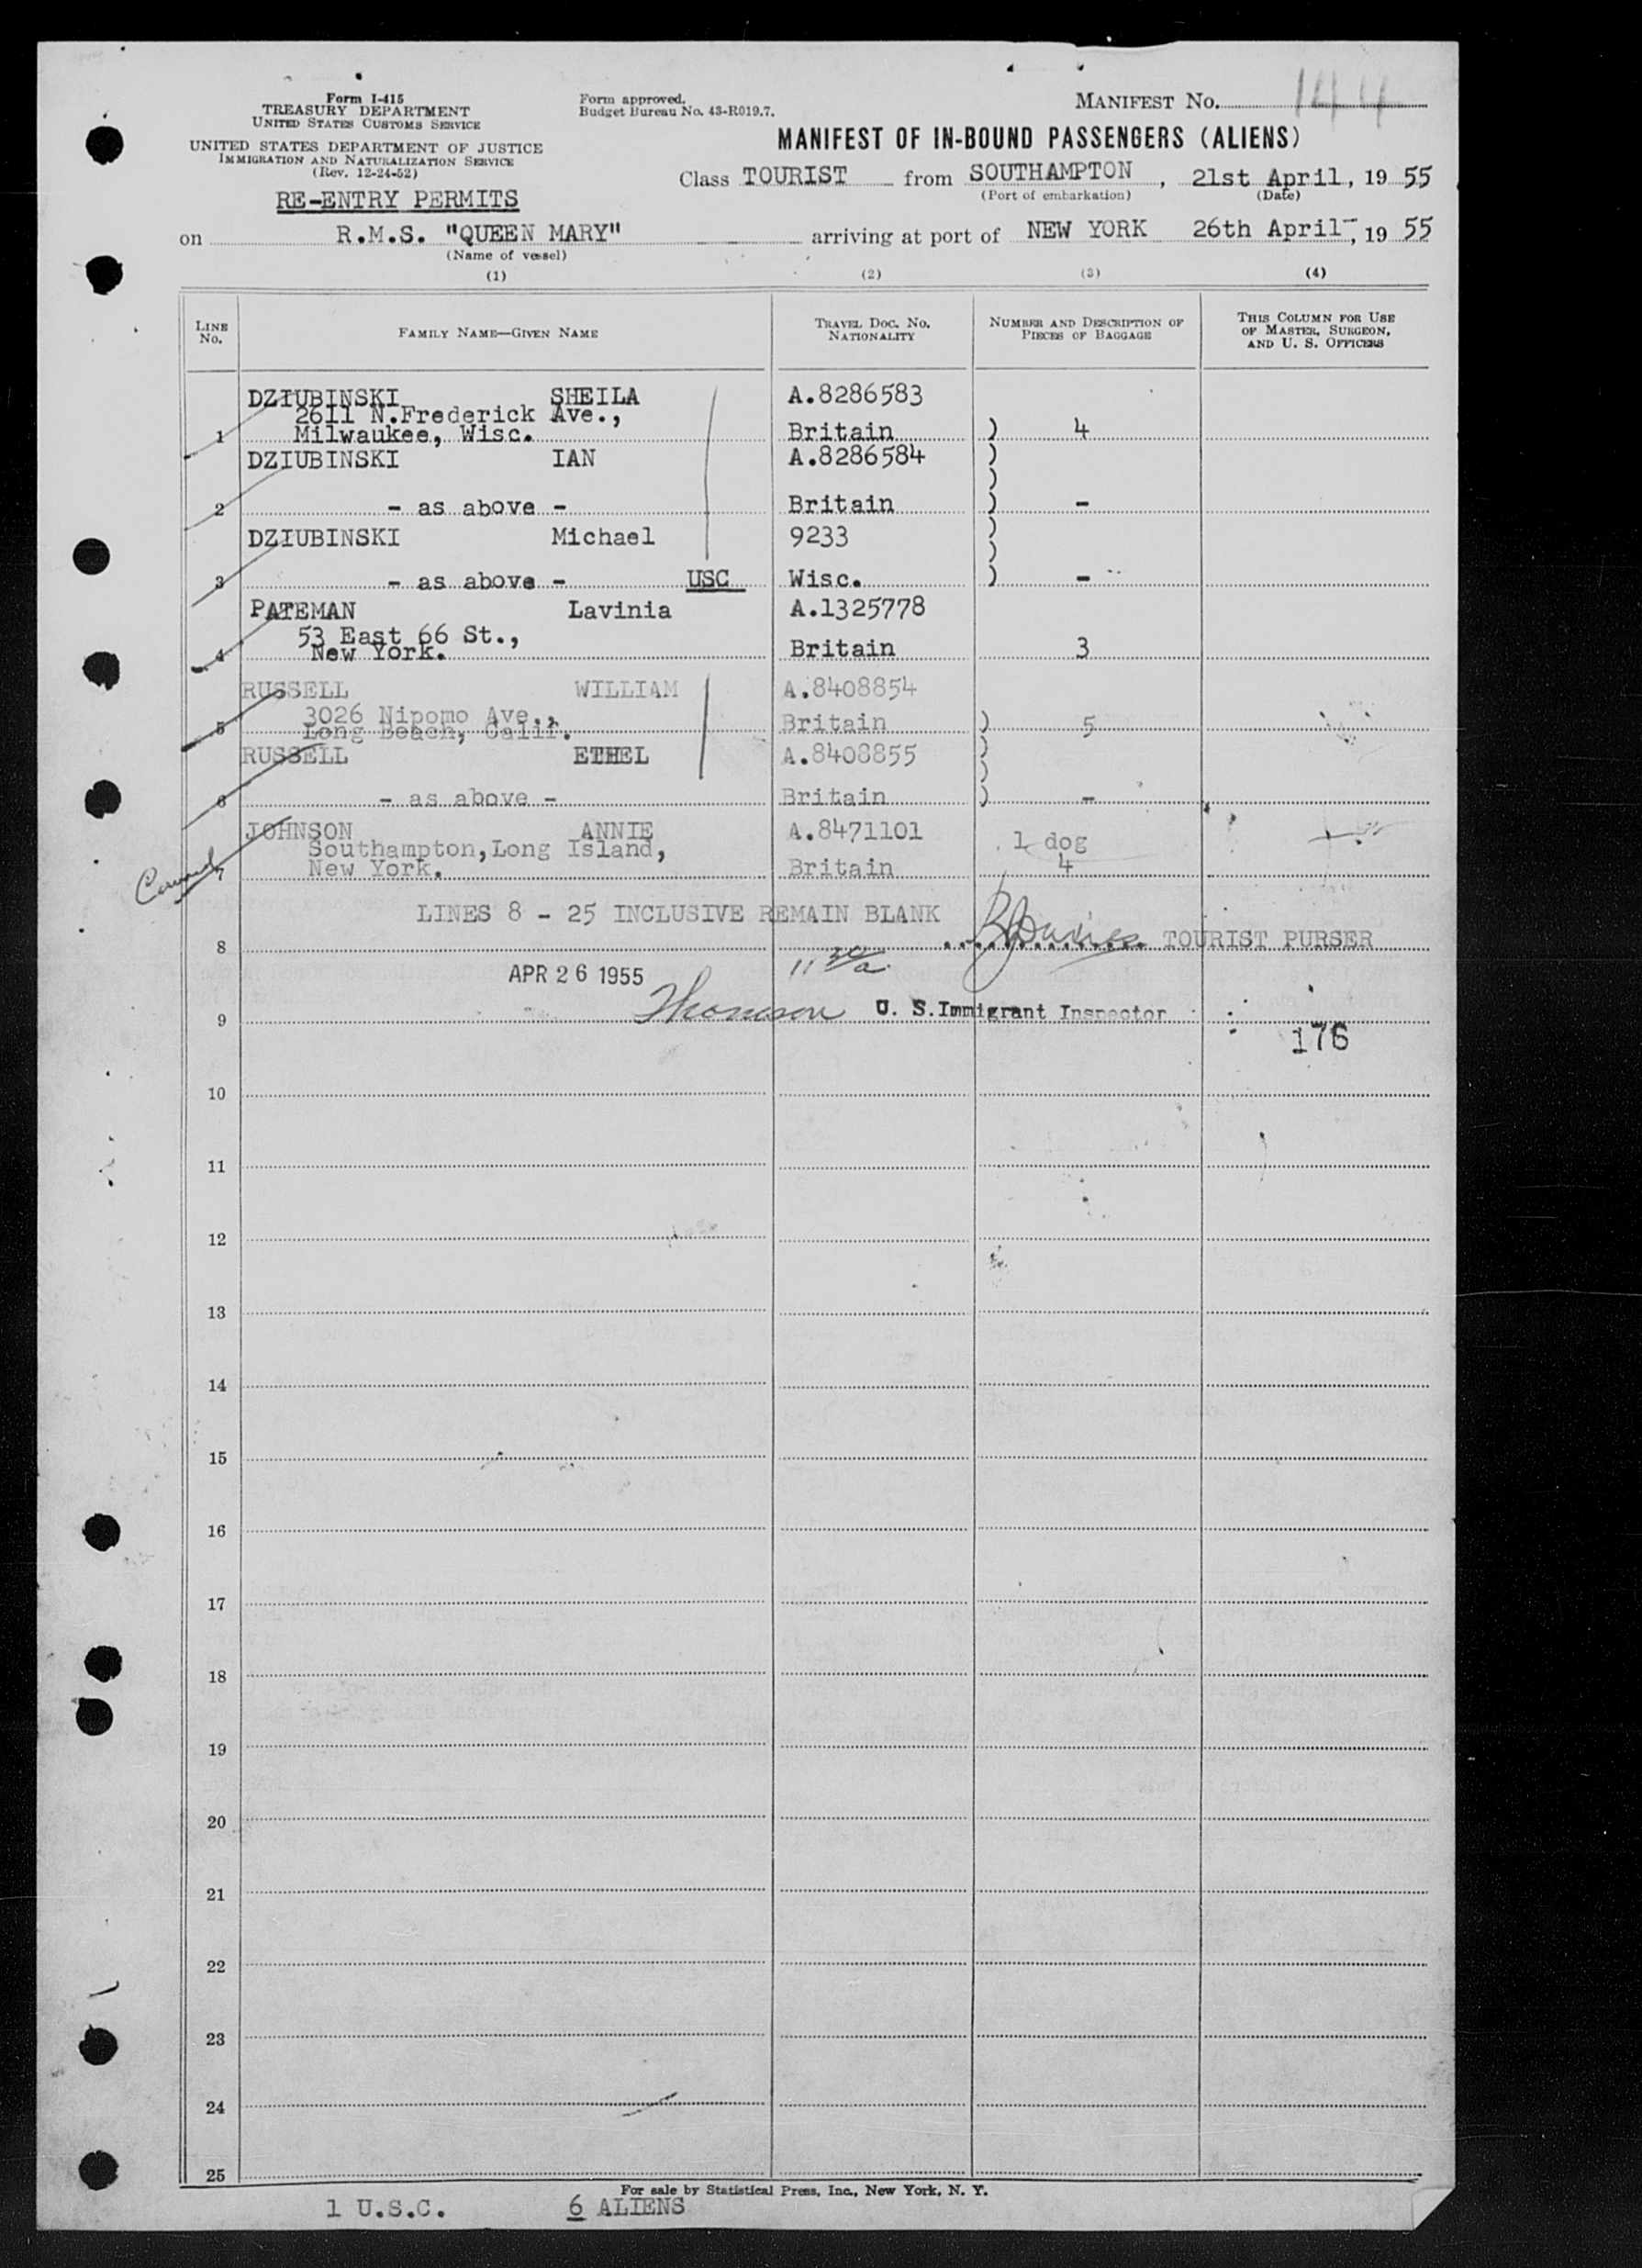 Form I-415
TREASURY DEPARTMENT
UNITED STATES CUSTOMS SERVICE
UNITED STATES DEPARTMENT OF JUSTICE
IMMIGRATION AND NATURALIZATION SERVICE
(Rev. 12-24-52)
RE-ENTRY PERMITS
Form approved.
Budget Bureau No. 43-R019.7.
MANIFEST NO. 144
MANIFEST OF IN-BOUND PASSENGERS (ALIENS)
Class TOURIST from SOUTHAMPTON, 21st April, 19 55
(Port of embarkation) (Date)
on R.M.S. "QUEEN MARY" arriving at port of NEW YORK 26th April, 19 55
(Name of vessel)
(1) (2) (3) (4)
LINE NO.
FAMILY NAME—GIVEN NAME
TRAVEL DOC. NO. NATIONALITY
NUMBER AND DESCRIPTION OF PIECES OF BAGGAGE
THIS COLUMN FOR USE OF MASTER, SURGEON, AND U. S. OFFICERS
DZIUBINSKI SHEILA A.8286583
2611 N.Frederick Ave.,
1 Milwaukee, Wisc. Britain ) 4
DZIUBINSKI IAN A.8286584 )
)
2 - as above - Britain ) -
DZIUBINSKI Michael 9233 )
)
3 - as above - USC Wisc. ) -
PATEMAN Lavinia A.1325778
53 East 66 St.,
4 New York. Britain 3
RUSSELL WILLIAM A.8408854
3026 Nipomo Ave.,
5 Long Beach, Calif. Britain ) 5
RUSSELL ETHEL A.8408855 )
)
6 - as above - Britain ) -
JOHNSON ANNIE A.8471101
Southampton,Long Island, 1 dog
7 New York. Britain 4
LINES 8 - 25 INCLUSIVE REMAIN BLANK
8 TOURIST PURSER
APR 26 1955 11 30/a
9 Thomson U. S. Immigrant Inspector
176
10
11
12
13
14
15
16
17
18
19
20
21
22
23
24
25
For sale by Statistical Press, Inc., New York, N. Y.
1 U.S.C. 6 ALIENS